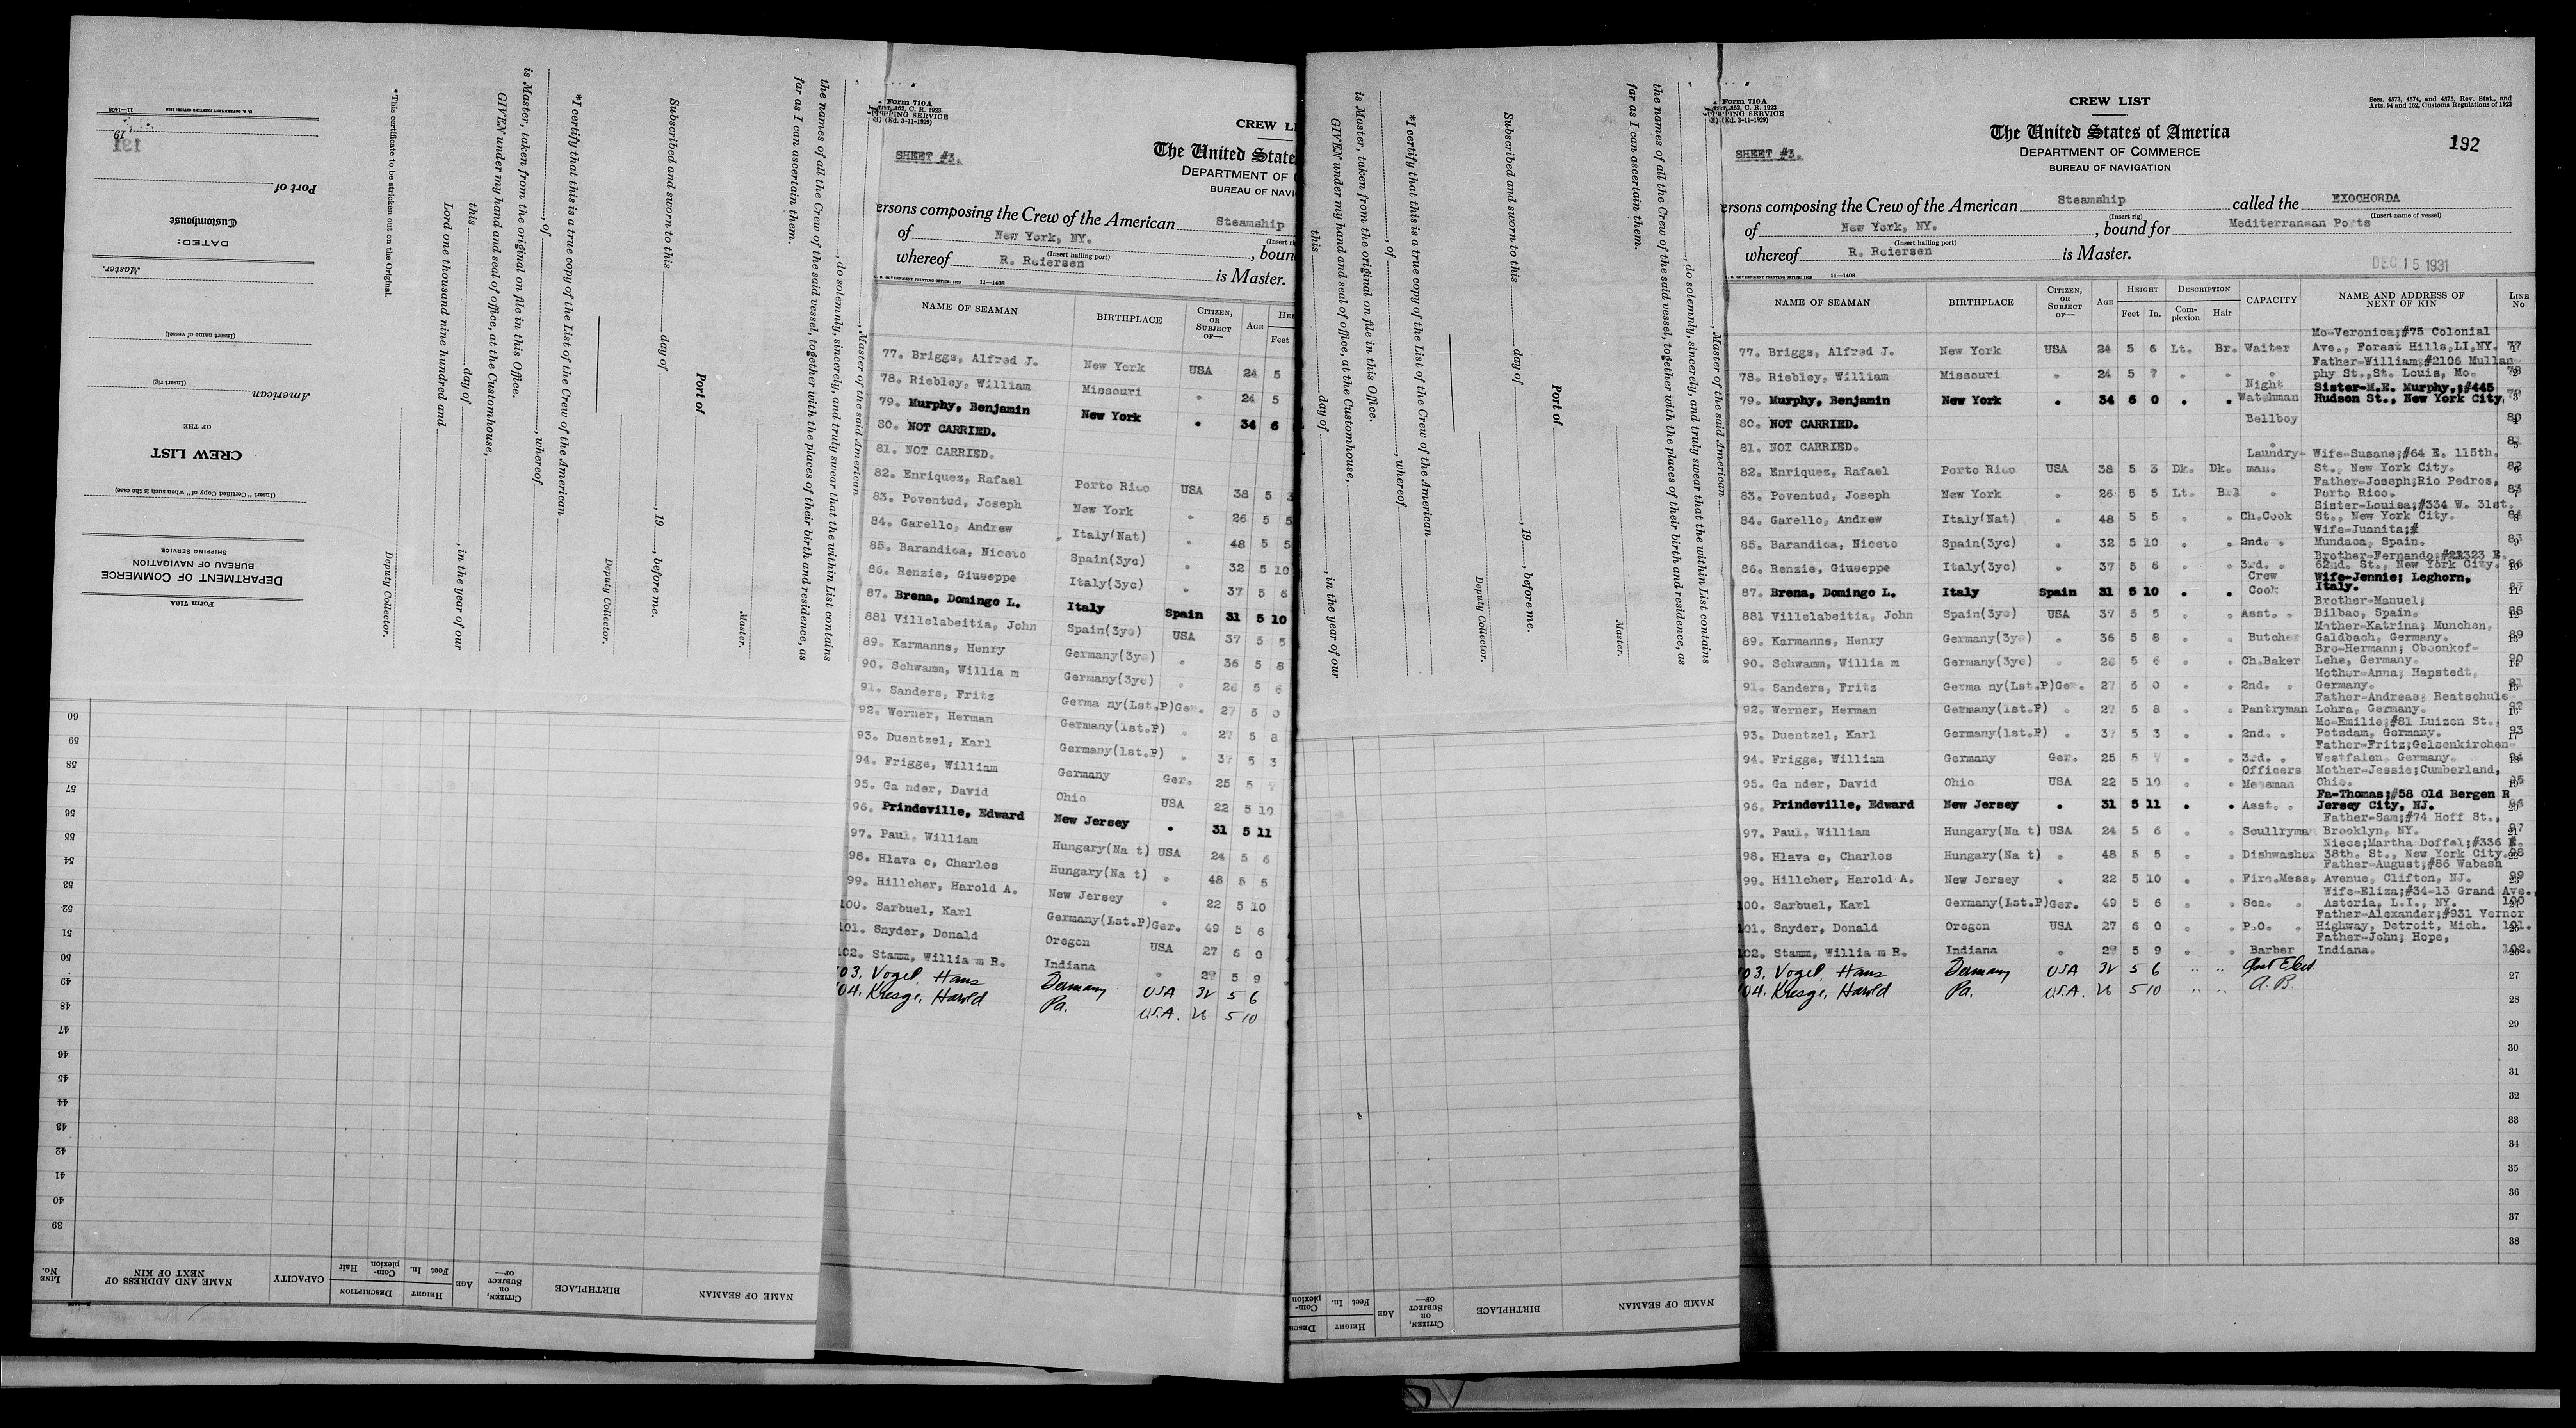 11—1408
19
191
Port of
Customhouse
DATED:
Master.
(Insert name of vessel)
(Insert rig)
American
OF THE
CREW LIST
(Insert "Certified Copy of" when such is the case)
SHIPPING SERVICE
BUREAU OF NAVIGATION
DEPARTMENT OF COMMERCE
Form 710A
*This certificate to be stricken out on the Original.
Deputy Collector.
Lord one thousand nine hundred and
this day of , in the year of our
GIVEN under my hand and seal of office, at the Customhouse,
is Master, taken from the original on file in this Office.
, of , whereof
*I certify that this is a true copy of the List of the Crew of the American
Deputy Collector.
Subscribed and sworn to this day of , 19 , before me.
Port of
Master.
far as I can ascertain them.
the names of all the Crew of the said vessel, together with the places of their birth and residence, as
, do solemnly, sincerely, and truly swear that the within List contains
, Master of the said American
60
59
58
57
56
55
54
53
52
51
50
49
48
47
46
45
44
43
42
41
40
39
LINE No. NAME AND ADDRESS OF NEXT OF KIN CAPACITY Hair Complexion DESCRIPTION In. Feet HEIGHT AGE CITIZEN, OR SUBJECT OF— BIRTHPLACE NAME OF SEAMAN
Form 710A
SHEET #3.
CREW LI
The United State
DEPARTMENT OF C
BUREAU OF NAVI
ersons composing the Crew of the American Steamship
of New York, NY. , boun
(Insert hailing port)
whereof R. Reiersen is Master.
11—1408
NAME OF SEAMAN BIRTHPLACE CITIZEN, OR SUBJECT OF— AGE HEI Feet
77. Briggs, Alfred J. New York USA 24 5
78. Riebley, William Missouri " 24 5
79. Murphy, Benjamin New York " 34 6
80. NOT CARRIED.
81. NOT CARRIED.
82. Enriquez, Rafael Porto Rico USA 38 5 3
83. Poventud, Joseph New York " 26 5 5
84. Garello, Andrew Italy(Nat) " 48 5 5
85. Barandica, Niceto Spain(3yc) " 32 5 10
86. Renzie, Giuseppe Italy(3yc) " 37 5 6
87. Brena, Domingo L. Italy Spain 31 5 10
88l Villelabeitia, John Spain(3yc) USA 37 5 5
89. Karmanns, Henry Germany(3yc) " 36 5 8
90. Schwamm, Willia m Germany(3yc) " 26 5 6
91. Sanders, Fritz Germa ny(1st.P)Ger. 27 6 0
92. Werner, Herman Germany(1st.P) " 27 5 8
93. Duentzel, Karl Germany(1st.P) " 37 5 3
94. Frigge, William Germany Ger. 25 5 7
95. Ga nder, David Ohio USA 22 5 10
96. Prindeville, Edward New Jersey " 31 5 11
97. Paul, William Hungary(Na t) USA 24 5 6
98. Hlava c, Charles Hungary(Na t) " 48 5 5
99. Hillcher, Harold A. New Jersey " 22 5 10
100. Sarbuel, Karl Germany(1st.P)Ger. 49 5 6
101. Snyder, Donald Oregon USA 27 6 0
102. Stamm, Willia m R. Indiana " 29 5 9
03. Vogel, Hans Germany USA 32 5 6
04. Kresge, Harold Pa. U.S.A. 26 5 10
this day of , in the year of our
GIVEN under my hand and seal of office, at the Customhouse,
is Master, taken from the original on file in this Office.
, of , whereof
*I certify that this is a true copy of the List of the Crew of the American
Deputy Collector.
Subscribed and sworn to this day of , 19 , before me.
Port of
Master.
far as I can ascertain them.
the names of all the Crew of the said vessel, together with the places of their birth and residence, as
, do solemnly, sincerely, and truly swear that the within List contains
, Master of the said American
Complexion DESCR HEIGHT In. Feet AGE CITIZEN, OR SUBJECT OF— BIRTHPLACE NAME OF SEAMAN
Form 710A
SHEET #3.
CREW LIST
The United States of America
DEPARTMENT OF COMMERCE
BUREAU OF NAVIGATION
Secs. 4573, 4574, and 4575, Rev. Stat., and
Arts. 94 and 162, Customs Regulations of 1923
192
ersons composing the Crew of the American Steamship called the EXOCHORDA
(Insert rig) (Insert name of vessel)
of New York, NY. , bound for Mediterranean Ports
(Insert hailing port)
whereof R. Reiersen is Master.
DEC 15 1931
11—1408
NAME OF SEAMAN BIRTHPLACE CITIZEN, OR SUBJECT OF— AGE HEIGHT Feet In. DESCRIPTION Complexion Hair CAPACITY NAME AND ADDRESS OF NEXT OF KIN LINE No
Mo-Veronica;#75 Colonial
77. Briggs, Alfred J. New York USA 24 5 6 Lt. Br. Waiter Ave., Forest Hills,LI,NY. 77
Father-William;#2106 Mullan-
78. Riebley, William Missouri " 24 5 7 " " " phy St.,St. Louis, Mo. 78
Night Sister-M.E. Murphy,;#445
79. Murphy, Benjamin New York " 34 6 0 " " Watchman Hudson St., New York City. 79
80. NOT CARRIED. Bellboy 80
81. NOT CARRIED. " 81
Laundry- Wife-Susane;#64 E. 115th.
82. Enriquez, Rafael Porto Rico USA 38 5 3 Dk. Dk. man. St., New York City. 82
Father-Joseph;Rio Pedros,
83. Poventud, Joseph New York " 26 5 5 Lt. Br. " Porto Rico. 83
Sister-Louisa;#334 W. 31st.
84. Garello, Andrew Italy(Nat) " 48 5 5 " " Ch.Cook St., New York City. 84
Wife-Juanita;#
85. Barandica, Niceto Spain(3yc) " 32 5 10 " " 2nd. " Mundaca, Spain. 85
Brother-Fernando;#21323 E.
86. Renzie, Giuseppe Italy(3yc) " 37 5 6 " " 3rd. " 62nd. St., New York City. 86
Crew Wife-Jennie; Leghorn,
87. Brena, Domingo L. Italy Spain 31 5 10 " " Cook Italy. 87
Brother-Manuel;
88l Villelabeitia, John Spain(3yc) USA 37 5 5 " " Asst. " Bilbao, Spain. 88
Mother-Katrina; Munchen,
89. Karmanns, Henry Germany(3yc) " 36 5 8 " " Butcher Galdbach, Germany. 89
Bro-Hermann; Oboonkof-
90. Schwamm, Willia m Germany(3yc) " 26 5 6 " " Ch.Baker Lehe, Germany. 90
Mother-Anna; Hapstedt,
91. Sanders, Fritz Germa ny(1st.P)Ger. 27 6 0 " " 2nd. " Germany. 91
Father-Andreas; Reatschule
92. Werner, Herman Germany(1st.P) " 27 5 8 " " Pantryman Lohra, Germany. 92
Mo-Emilie;#81 Luizen St.,
93. Duentzel, Karl Germany(1st.P) " 37 5 3 " " 2nd. " Potsdam, Germany. 93
Father-Fritz;Gelsenkirchen-
94. Frigge, William Germany Ger. 25 5 7 " " 3rd. " Westfalen, Germany. 94
Officers Mother-Jessie;Cumberland,
95. Ga nder, David Ohio USA 22 5 10 " " Messman Ohio. 95
Fa-Thomas;#58 Old Bergen R
96. Prindeville, Edward New Jersey " 31 5 11 " " Asst. " Jersey City, NJ. 96
Father-Sam;#74 Hoff St.,
97. Paul, William Hungary(Na t) USA 24 5 6 " " Scullryman Brooklyn, NY. 97
Niece;Martha Doffel;#336 E.
98. Hlava c, Charles Hungary(Na t) " 48 5 5 " " Dishwasher 38th. St., New York City. 98
Father-August;#86 Wabash
99. Hillcher, Harold A. New Jersey " 22 5 10 " " Fire.Mess, Avenue, Clifton, NJ. 99
Wife-Eliza;#34-13 Grand Ave.,
100. Sarbuel, Karl Germany(1st.P)Ger. 49 5 6 " " Sea. " Astoria, L.I., NY. 100
Father-Alexander;#931 Vernor
101. Snyder, Donald Oregon USA 27 6 0 " " P.O. " Highway, Detroit, Mich. 101.
Father-John; Hope,
102. Stamm, Willia m R. Indiana " 29 5 9 " " Barber Indiana. 102.
03. Vogel, Hans Germany USA 32 5 6 " " Asst Elect. 27
04. Kresge, Harold Pa. U.S.A. 26 5 10 " " A.B. 28
29
30
31
32
33
34
35
36
37
38